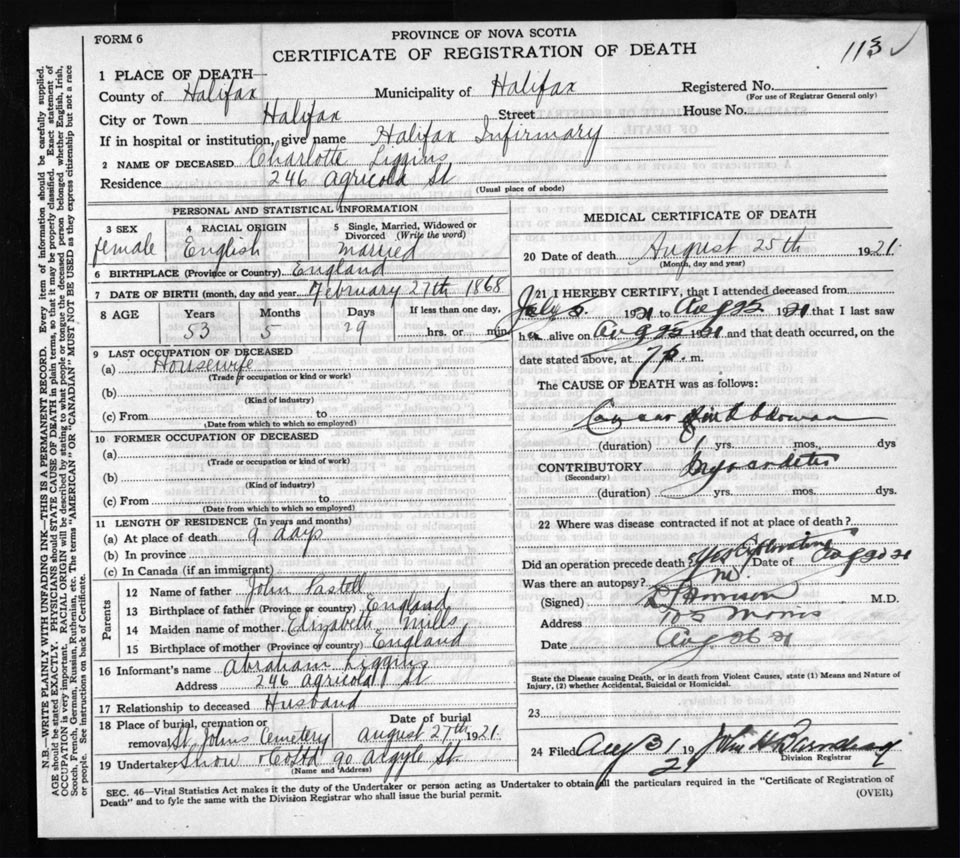 FORM 6
PROVINCE OF NOVA SCOTIA
CERTIFICATE OF REGISTRATION OF DEATH
113
1 PLACE OF DEATH—
County of Halifax Municipality of Halifax Registered No.
(For use of Registrar General only)
City or Town Halifax Street House No.
If in hospital or institution, give name Halifax Infirmary
2 NAME OF DECEASED Charlotte Liggins
Residence 246 Agricola St
(Usual place of abode)
PERSONAL AND STATISTICAL INFORMATION
3 SEX 4 RACIAL ORIGIN 5 Single, Married, Widowed or Divorced (Write the word)
female English married
6 BIRTHPLACE (Province or Country) England
7 DATE OF BIRTH (month, day and year) February 27th 1868
8 AGE Years Months Days If less than one day,
53 5 29 hrs. or min
9 LAST OCCUPATION OF DECEASED
(a) Housewife
(Trade or occupation or kind or work)
(b)
(Kind of industry)
(c) From to
(Date from which to which so employed)
10 FORMER OCCUPATION OF DECEASED
(a)
(Trade or occupation or kind or work)
(b)
(Kind of industry)
(c) From to
(Date from which to which so employed)
11 LENGTH OF RESIDENCE (In years and months)
(a) At place of death 9 days
(b) In province
(c) In Canada (if an immigrant)
Parents
12 Name of father John Pastoll
13 Birthplace of father (Province or country) England
14 Maiden name of mother Elizabeth Mills
15 Birthplace of mother (Province or country) England
16 Informant's name Abraham Liggins
Address 246 Agricola St
17 Relationship to deceased Husband
18 Place of burial, cremation or Date of burial
removal St Johns Cemetery August 27th 1921
19 Undertaker Snow & Co Ltd 90 Argyle St.
(Name and Address)
MEDICAL CERTIFICATE OF DEATH
20 Date of death August 25th 1921
(Month, day and year)
21 I HEREBY CERTIFY, that I attended deceased from
July 5 1921 to Aug 25 1921 that I last saw
her alive on Aug 25 1921 and that death occurred, on the
date stated above, at 7 p. m.
The CAUSE OF DEATH was as follows:
(duration) 1 yrs. mos. dys
CONTRIBUTORY
(Secondary)
(duration) yrs. mos. dys.
22 Where was disease contracted if not at place of death?
Did an operation precede death Yes Date of Aug 21
Was there an autopsy? No
(Signed) M.D.
Address
Date Aug 26 21
State the Disease causing Death, or in death from Violent Causes, state (1) Means and Nature of Injury, (2) whether Accidental, Suicidal or Homicidal.
23
24 Filed Aug 31 1921
Division Registrar
SEC. 46—Vital Statistics Act makes it the duty of the Undertaker or person acting as Undertaker to obtain all the particulars required in the "Certificate of Registration of
Death" and to fyle the same with the Division Registrar who shall issue the burial permit.
(OVER)
N.B.—WRITE PLAINLY WITH UNFADING INK—THIS IS A PERMANENT RECORD. Every item of information should be carefully supplied.
AGE should be stated EXACTLY. PHYSICIANS should STATE CAUSE OF DEATH in plain terms, so that it may be properly classified. Exact statement of
OCCUPATION is very important. RACIAL ORIGIN will be described by stating to what people or tongue the deceased person belonged whether English, Irish,
Scotch, French, German, Russian, Ruthenian, etc. The terms "AMERICAN" OR "CANADIAN" MUST NOT BE USED as they express citizenship but not a race
or people. See instructions on back of Certificate.